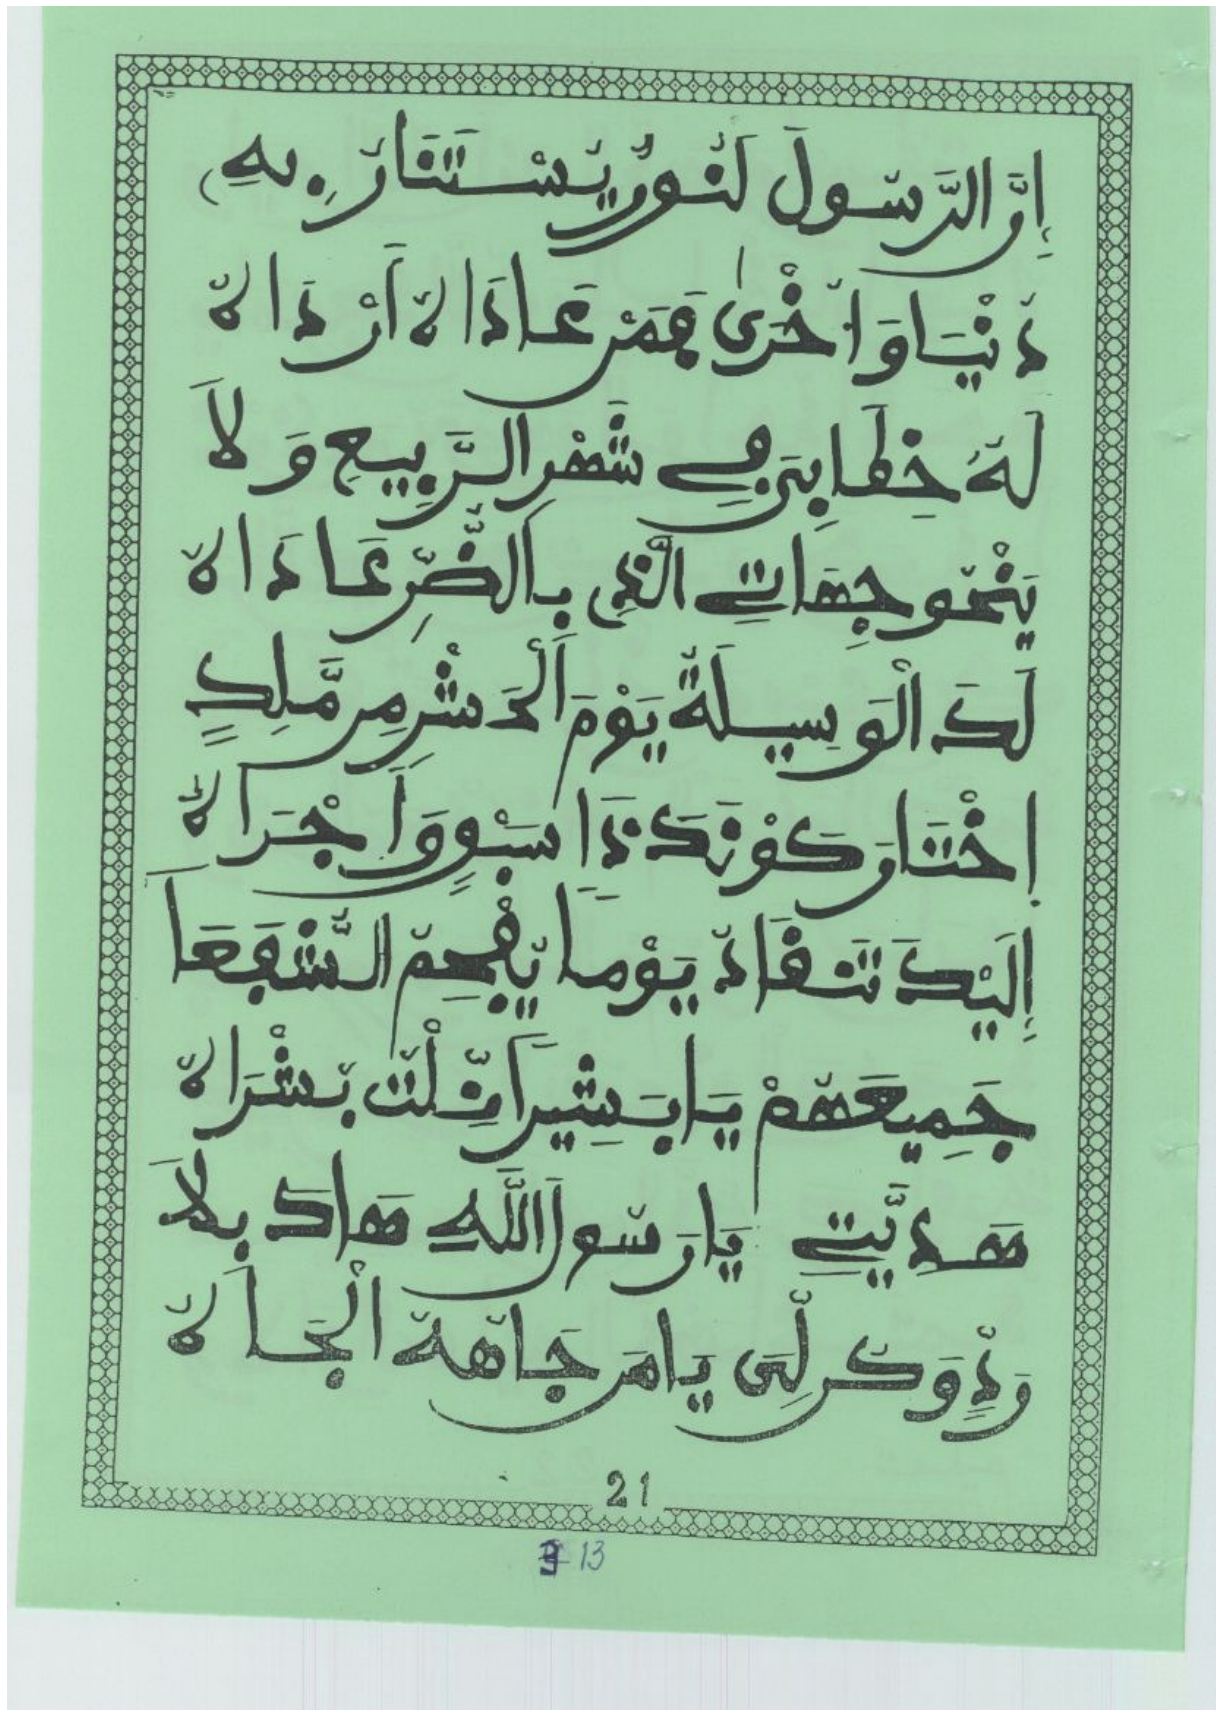 إِنَّ الرَّسُولَ لَنُورٌ يُسْتَنَارُ بِهِ
دُنْيَا وَأُخْرَىٰ فَمَنْ عَادَاهُ أَرْدَاهُ
لَهُ خِطَابِىَ فِى شَهْرِ الرَّبِيعِ وَلَا
يَنْحُو جِهَاتِى الَّذِى بِالضُّرِّ عَادَاهُ
لَكَ الْوَسِيلَةُ يَوْمَ الْحَشْرِ مِن مَّلِكٍ
إِخْتَارَ كَوْنَكَ ذَا سَبْقٍ وَأَجْرَاهُ
إِلَيْكَ تَنقَادُ يَوْمًا يُفْحَمُ الشُّفَعَا
جَمِيعُهُمْ يَا بَشِيرًا نِلْتُ بُشْرَاهُ
هَدِيَّتِى يَا رَسُولَ اللَّهِ هَاكَ بِلَا
وَذُو كَن لِّى يَا مَن جَاهُهُ الْجَاهُ
21
13